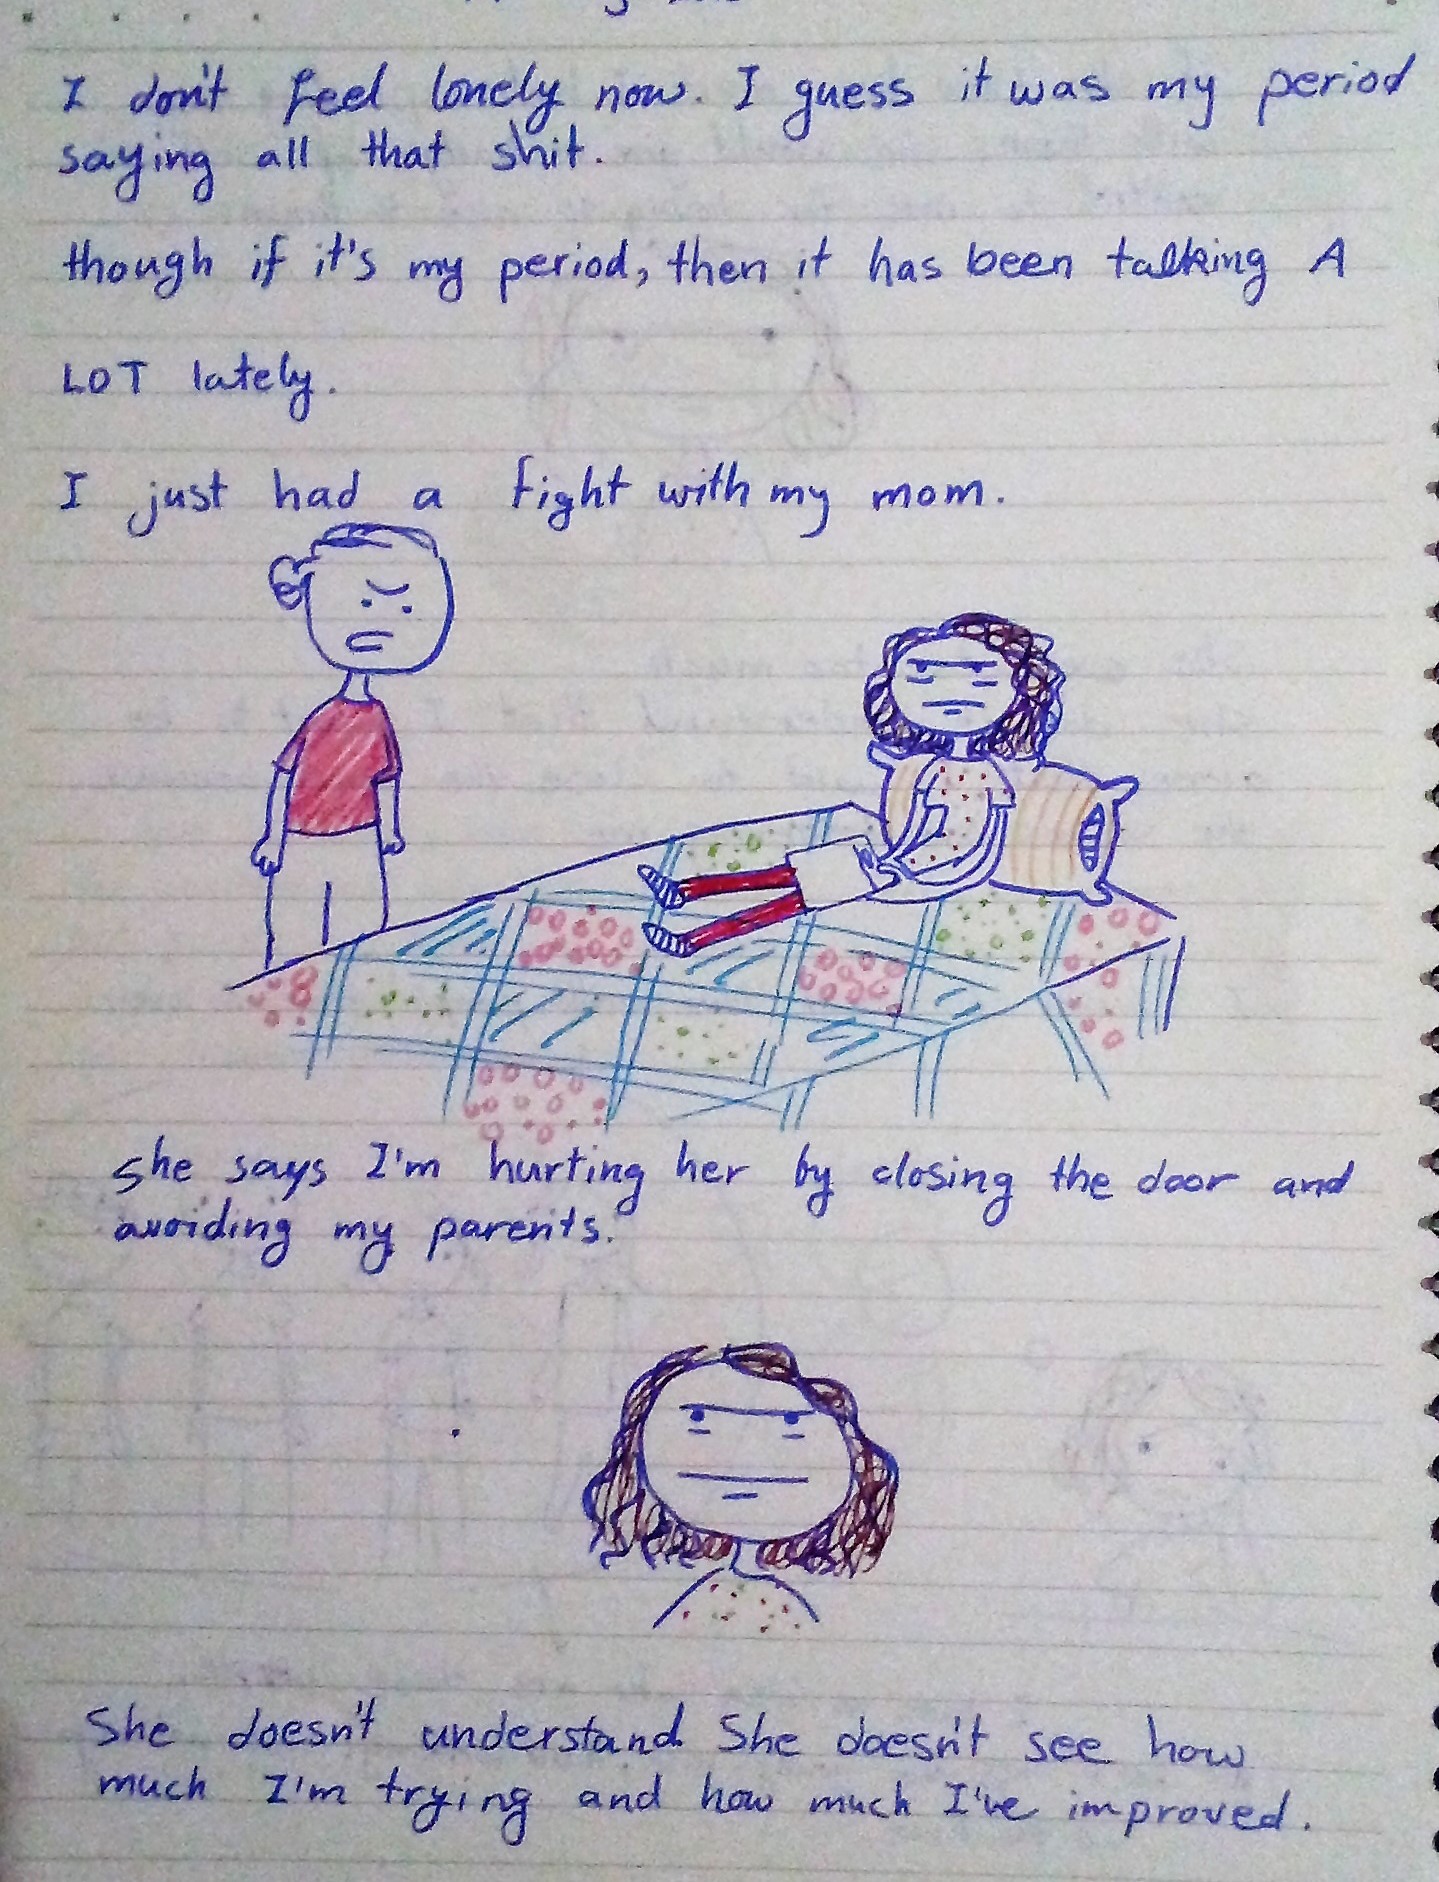 I don't feel lonely now. I guess it was my period
saying all that shit.
though if it's my period, then it has been talking A
LOT lately.
I just had a fight with my mom.
She says I'm hurting her by closing the door and
avoiding my parents.
She doesn't understand She doesn't see how
much I'm trying and how much I've improved.